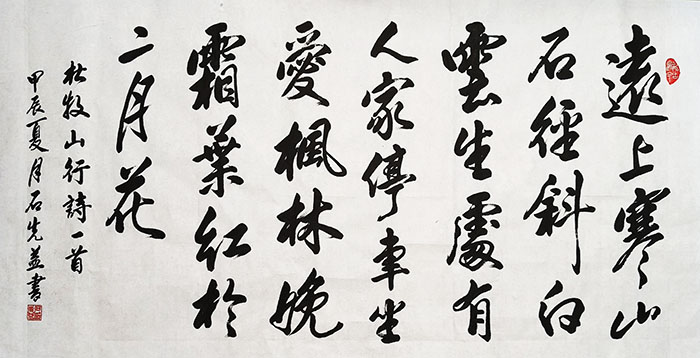 遠上寒山
石徑斜白
雲生處有
人家停車坐
愛楓林晚
霜葉紅於
二月花
杜牧山行詩一首
甲辰夏月石先益書